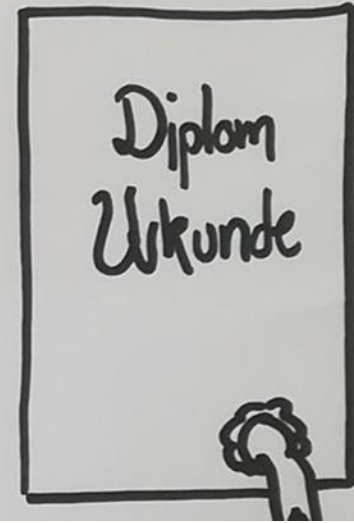 Diplom
Urkunde